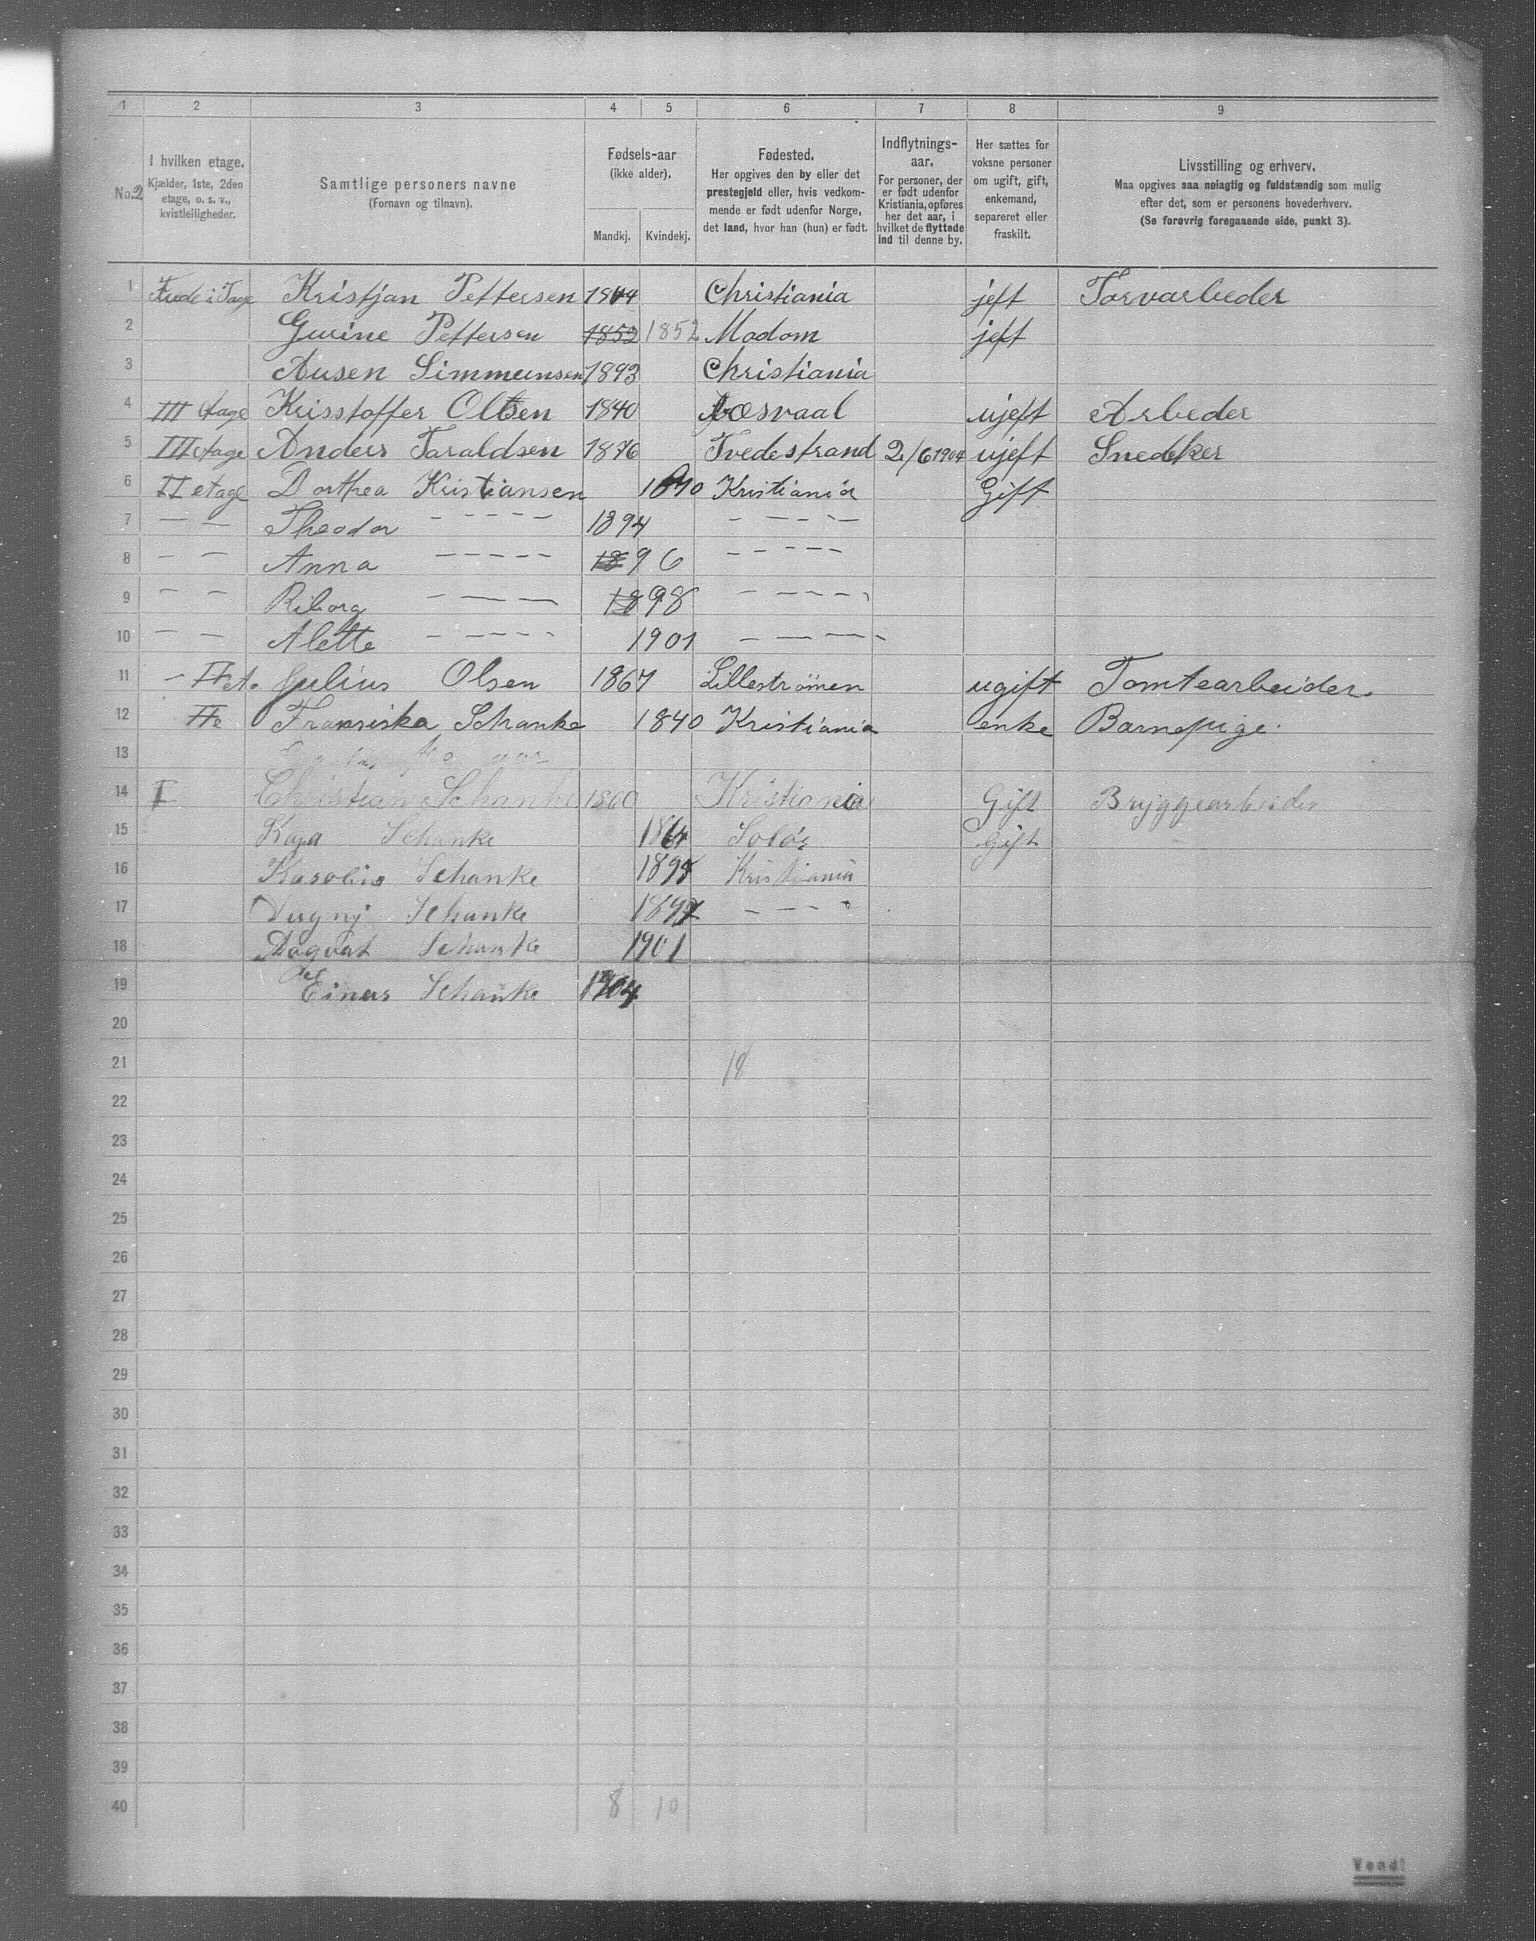 1 2 3 4 5 6 7 8 9
No. 2
I hvilken etage.
Kjælder, 1ste, 2den
etage, o. s. v.,
kvistleiligheder.
Samtlige personers navne
(Fornavn og tilnavn).
Fødsels-aar
(ikke alder).
Mandkj. Kvindekj.
Fødested.
Her opgives den by eller det
prestegjeld eller, hvis vedkom-
mende er født udenfor Norge,
det land, hvor han (hun) er født.
Indflytnings-
aar.
For personer, der
er født udenfor
Kristiania, opføres
her det aar, i
hvilket de flyttede
ind til denne by.
Her sættes for
voksne personer
om ugift, gift,
enkemand,
separeret eller
fraskilt.
Livsstilling og erhverv.
Maa opgives saa nøiagtig og fuldstændig som mulig
efter det, som er personens hovederhverv.
(Se forøvrig foregaaende side, punkt 3).
1 Kristjan Pettersen 1844 Christiania jeft Torvarbeder
2 Gurine Pettersen 1852 1852 Modom jeft
3 Ausen Simmunsen 1893 Christiania
4 III etage Krisstoffer Olsen 1840 ujeft Arbeder
5 III etage Anders Taraldsen 1876 Tvedestrand 2/6 1904 ujeft Snedker
6 II etage Dorthea Kristiansen 1870 Kristiania Gift
7 — — Theodor - - - - - 1894 - - - - -
8 — — Anna - - - - - 1896 - - - - -
9 — — Riborg - - - - 1898 - - - - -
10 — — Alette - - - - - 1901 - - - - -
11 - II et. Julius Olsen 1867 Lillestrømen ugift Tomtearbeider.
12 II e Fransiska Schanke 1840 Kristiania enke Barnepige.
13
14 I Christian Schanke 1860 Kristiania Gift Bryggearbeider
15 Kaja Schanke 1864 Solør gift
16 Karoline Schanke 1895 Kristiania
17 Dugny Schanke 1897 - - - -
18 Dagvat Schanke 1901
19 Einar Schanke 1904
20
21 18
22
23
24
25
26
27
28
29
30
31
32
33
34
35
36
37
38
39
40 8 10
Vend!